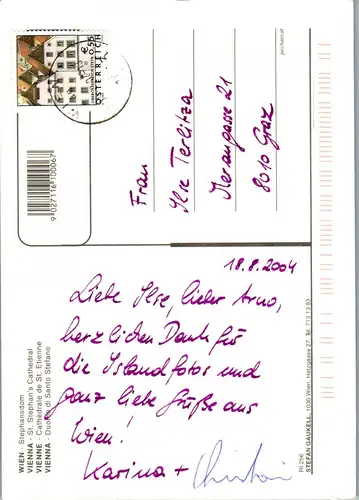 18.8.2004
Liebe Ilse, lieber Arno,
herzlichen Dank für
die Islandfotos und
ganz liebe Grüße aus
Wien!
Karina + Christian
Frau
Ilse Terlitza
Merangasse 21
8010 Graz
0,55
ÖSTERREICH
9 027116 100067
WIEN - Stephansdom
VIENNA - St. Stephan's Cathedral
VIENNE - Cathédrale de St. Etienne
VIENNA - Duomo di Santo Stefano
RI 256
STEFAN GAUKELL, 1030 Wien, Hetzgasse 27, Tel. 713 13 83